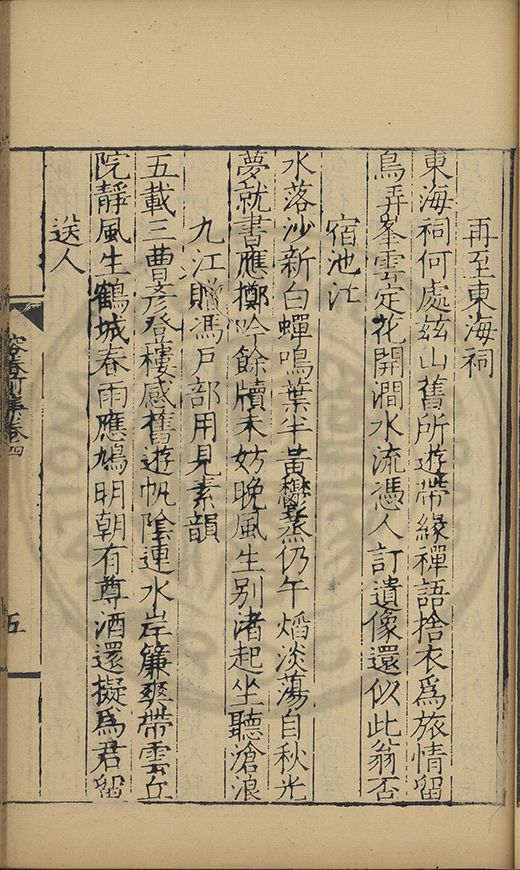 再至東海祠
東海祠何處茲山舊所遊帶緣禪語捨衣爲旅情留
鳥弄峯雲定花開澗水流憑人訂遺像還似此翁否
宿池
水落沙新白蟬鳴葉半黃鬱蒸仍午熖淡蕩自秋光
夢就書應擲吟餘牘未妨晚風生别渚起坐聽滄浪
九江贈馮戶部用見素韻
五載三曹彥登樓感舊遊帆陰連水岸簾爽帶雲丘
院靜風生鶴城春雨應鳩明朝有尊酒還擬爲君留
送人
容春别集卷四
五